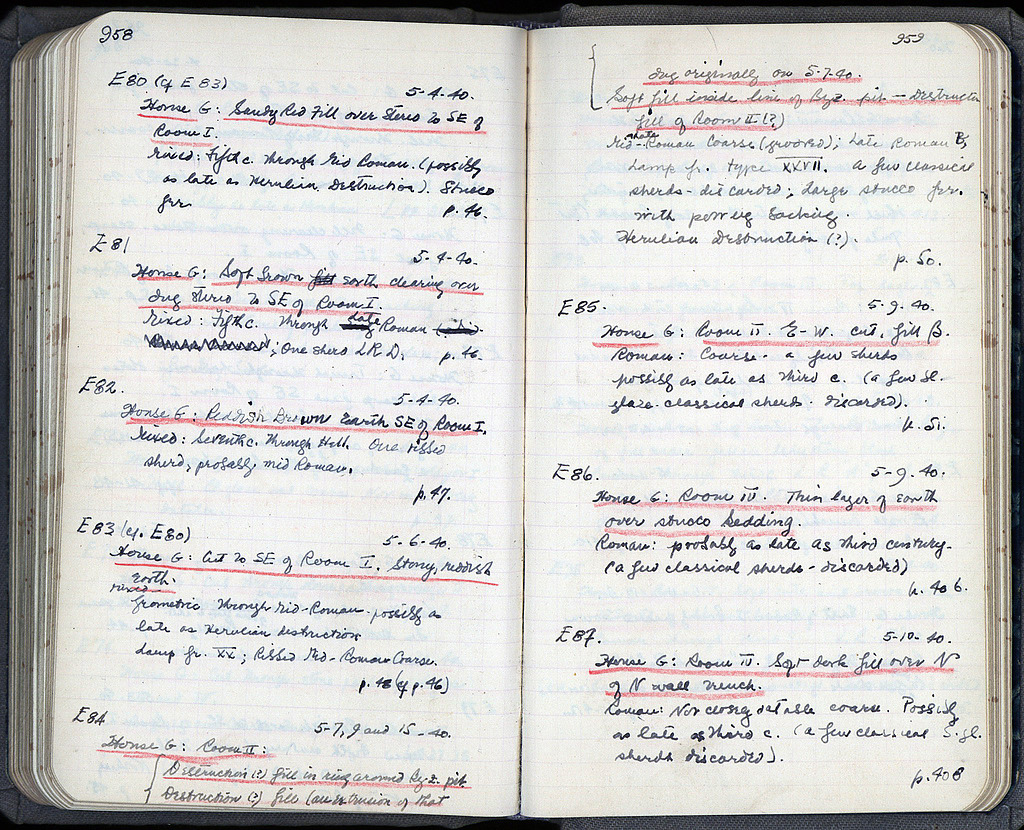 958
E80 (cf E 83)
5-4-40.
House G: Sandy Red Fill over Stereo to SE of
Room I.
Mixed: Fifth c. through Mid Roman. (possibly
as late as Herulian Destruction). Stucco
fr.
p. 46.
E 81
5-4-40.
House G: Soft brown earth clearing over
dug stereo to SE of Room I.
Mixed: Fifth c. through Late Roman
; One sherd L.R.D. p. 46.
E82.
5-4-40.
House G: Reddish Brown Earth SE of Room I.
Mixed: Seventh c. through Hell. One ribbed
sherd, probably mid Roman.
p. 47.
E83 (cf. E80)
5-6-40.
House G: Cut to SE of Room I. Stony, reddish
earth.
Mixed
Geometric through Mid-Roman - possibly as
late as Herulian destruction
Lamp fr. XX; Ribbed Mid-Roman Coarse.
p. 48 (cf p. 46)
E84
5-7, 9 and 15-40.
House G: Room II:
Destruction (?) fill in ring around Byz. pit
Destruction (?) fill (an extrusion of that
959
dug originally on 5-7-40.
Soft fill inside line of Byz. pit - Destruction
fill of Room II (?)
Mid-Late Roman Coarse (grooved); Late Roman B;
Lamp fr. type XXVII. A few classical
sherds - discarded; large stucco frr.
with poros backing.
Herulian Destruction (?).
p. 50.
E85.
5-9-40.
House G: Room II. E-W. cut, fill B.
Roman: Coarse - a few sherds
possibly as late as third c. (a few bl.
glaze classical sherds - discarded).
p. 51.
E86.
5-9-40.
House G: Room IV. Thin layer of earth
over stucco bedding.
Roman: probably as late as third century-
(a few classical sherds - discarded)
p. 406.
E87.
5-10-40.
House G: Room IV. Soft dark fill over N
of N wall trench.
Roman: Not closely datable coarse. Possibly
as late as third c. (a few classical b. gl.
sherds discarded).
p. 408